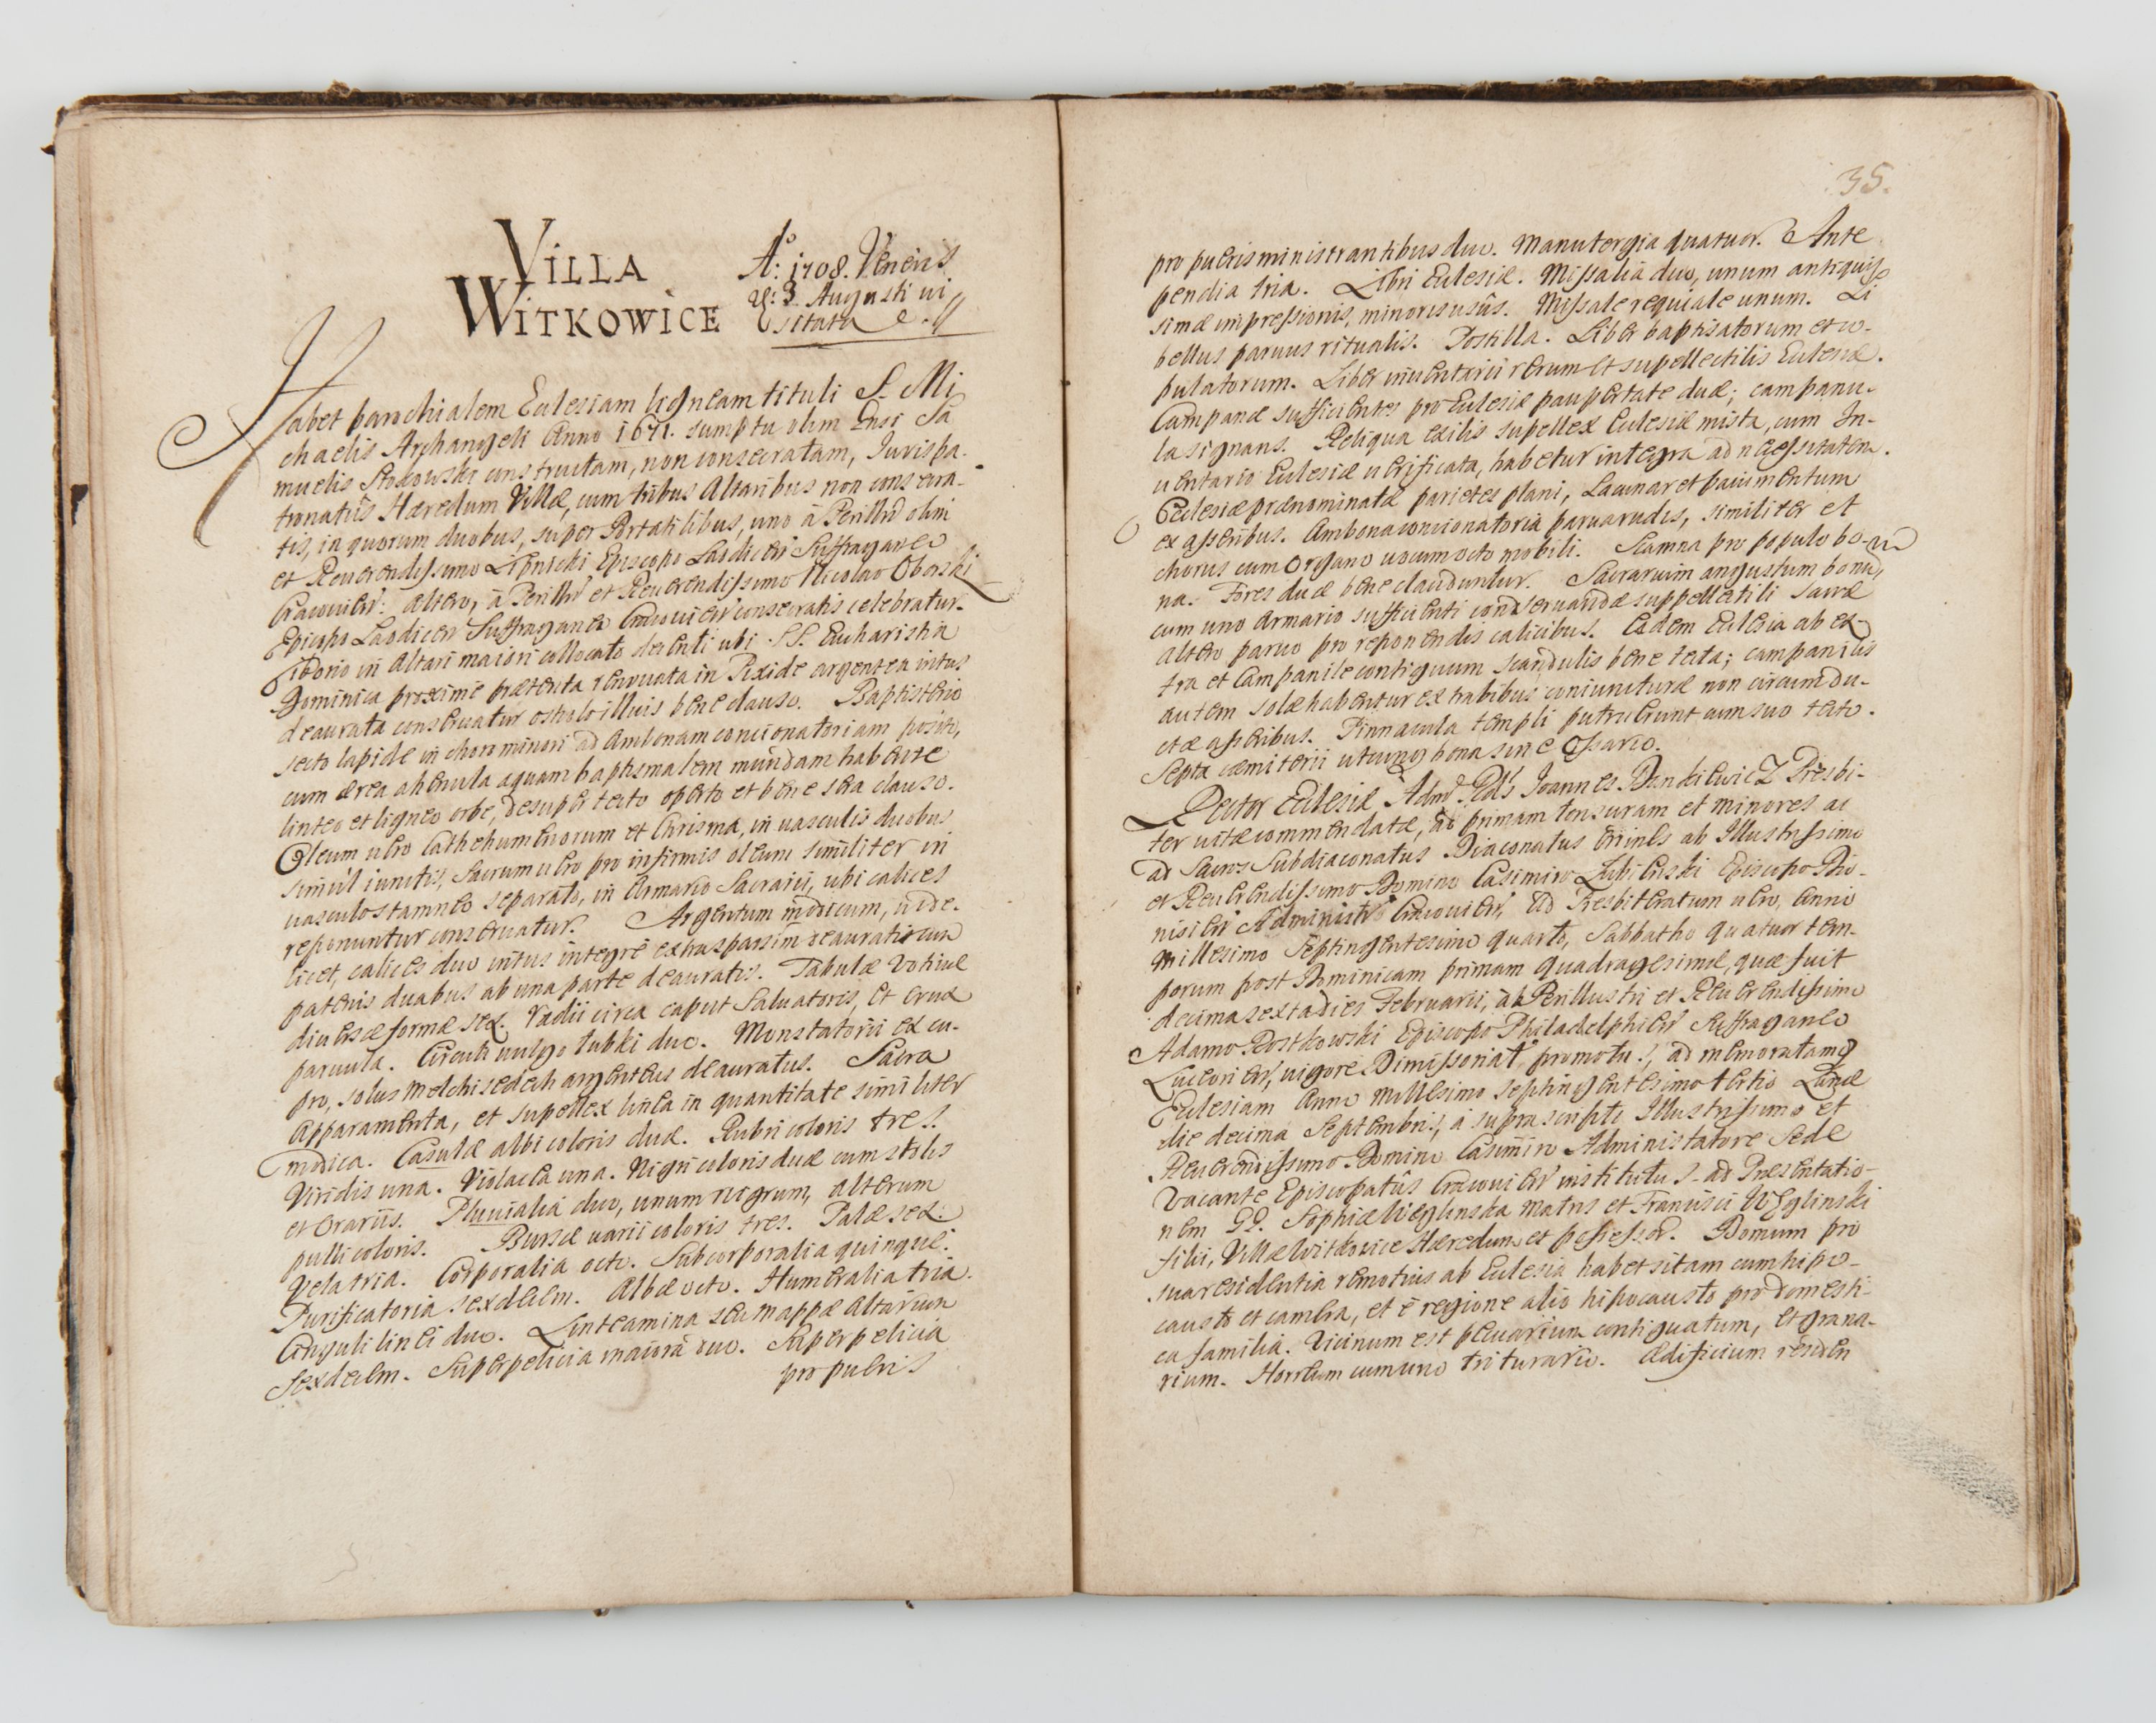 VILLA
WITKOWICE
Aº: 1708. Veneris
d: 3. Augusti vi
sitata e.//
Habet parochialem Eclesiam ligneam tituli S. Mi
chaelis Archangeli Anno 1671. sumptu olim Gnsi Sa
muelis constructam, non consecratam, Iurispa-
tronatûs Hæredum Villæ, cum tribus Altaribus non consecra-
tis, in quorum duobus, super Portatilibus, uno à Perillri olim
et Reverendissimo Lipnicki Episcopo Laodicen Suffraganeo
Cracovien: altero, à Perillri et Reverendissimo Nicolao Oborski
Epicopo Laodicen Suffraganeo Cracovien consecratis celebratur.
Ciborio in Altari maiori collocato decenti ubi SS. Eucharistia
Dominica proximè præterita renovata in Pixide argentea intus
deaurata conservatur ostiolo illius bene clauso. Baptisterio
secto lapide in choro minori ad ambonam concionatoriam posito,
cum ærea ahenula aquam baptismalem mundam habente
linteo et ligneo orbe, desuper tecto operto et bene sera clauso.
Oleum vero Cathehumenorum et Chrisma, in vasculis duobus
simùl iunctis, Sacrum vero pro infirmis oleum similiter in
vasculo stamneo separato, in Armario Sacrarii, ubi calices
reponuntur conservatur. Argentum modicum, vide-
licet, calices duo intus integrè exhus passim deaurati cum
patenis duabus ab una parte deauratis. Tabulæ Votivæ
diversæ formæ sex. Radii circa caput Salvatoris, et crux
parvula. Circuli vulgo Łubki duo. Monstatorii ex cu-
pro, solus Melchisedech argenteus deauratus. Sacra
Apparamenta, et supellex linea in quantitate similiter
modica. Casulæ albi coloris duæ. Rubri coloris tres.
Viridis una. Violacea una. Nigri coloris duæ cum stolis
et Orariis. Pluvialia duo, unum nigrum, alterum
pulli coloris. Bursæ varii coloris tres. Palæ sex.
Vela tria. Corporalia octo. Subcorporalia quinque.
Purificatoria sexdecem. Albæ octo. Humeralia tria.
Cinguli linei duo. Linteamina seu mappæ Altarium
sexdecem. Superpelicia maiora duo. Superpelicia
pro pueris
35.
pro pueris ministrantibus duo. Manutergia quatuor. Ante
pendia tria. Libri Eclesiæ. Missalia duo, unum antiquis
simæ impressionis, minoris usûs. Missale requiale unum. Li
bellus parvus ritualis. Postilla. Liber baptisatorum et co-
pulatorum. Liber inventarii rerum et supellectilis Eclesiæ.
Campanæ sufficientes pro Eclesiæ paupertate duæ; campanu-
la signans. Reliqua exilis supellex Eclesiæ mista, cum In-
ventario Eclesiæ verificata, habetur integra ad necessitatem.
Eclesiæ prænominatæ parietes plani, Lacunar et pavimentum
ex asseribus. Ambona concionatoria parva rudis, similiter et
chorus cum Organo vocum octo mobili. Scamna pro populo bo-
na. Fores duæ bene clauduntur. Sacrarium angustum bonum
cum uno Armario sufficienti conservandæ suppellectili sacræ
altero parvo pro reponendis calicibus. Eadem Eclesia ab ex-
tra et Campanile contiguum scandulis bene tecta; campanilis
autem solæ habentur ex trabibus coniuncturæ non circumdu-
ctæ asseribus. Pinnacula templi putruerunt cum suo tecto.
Septa cæmiterii utcunq bona sine Ossario.
Rector Eclesiæ Admr. Rds Ioannes Presbi-
ter vitæ commendatæ, ad primam tonsuram et minores ac
ad Sacros Subdiaconatus Diaconatus Ordines ab Illustrissimo
et Reverendissimo Domino Casimiro Łubienski Episcopo
Administre Cracovien, ad Presbiteratum vero, Anno
Millesimo Septingentesimo quarto, Sabbatho quatuor tem-
porum post Dominicam primam Quadragesimæ, quæ fuit
decima sexta dies Februarii, ab Perillustri et Reverendissimo
Adamo Rostkowski Episcopo Philadelphien Suffraganeo
Luceorien, vigore Dimissoriat promotus, ad memoratamq
Eclesiam Anno Millesimo septingentesimo tertio Lunæ
die decima Septembris, à supra scripto Illustrissimo et
Reverendissimo Domino Casimiro Administatore Sede
Vacante Episcopatûs Cracovien institutus ad Præsentatio-
nem GG. Sophiæ Węglinska Matris et Francisci Węglinski
filii, Villæ Witkowice Hæredum et possessor. Domum pro
sua residentia remotius ab Eclesia habet sitam cum hipo-
causto et camera, et è regione alio hipocausto pro domesti-
ca familia. Vicinum est pecuarium contiguatum, et grana-
rium. Horreum cum uno triturario. Ædificium residen